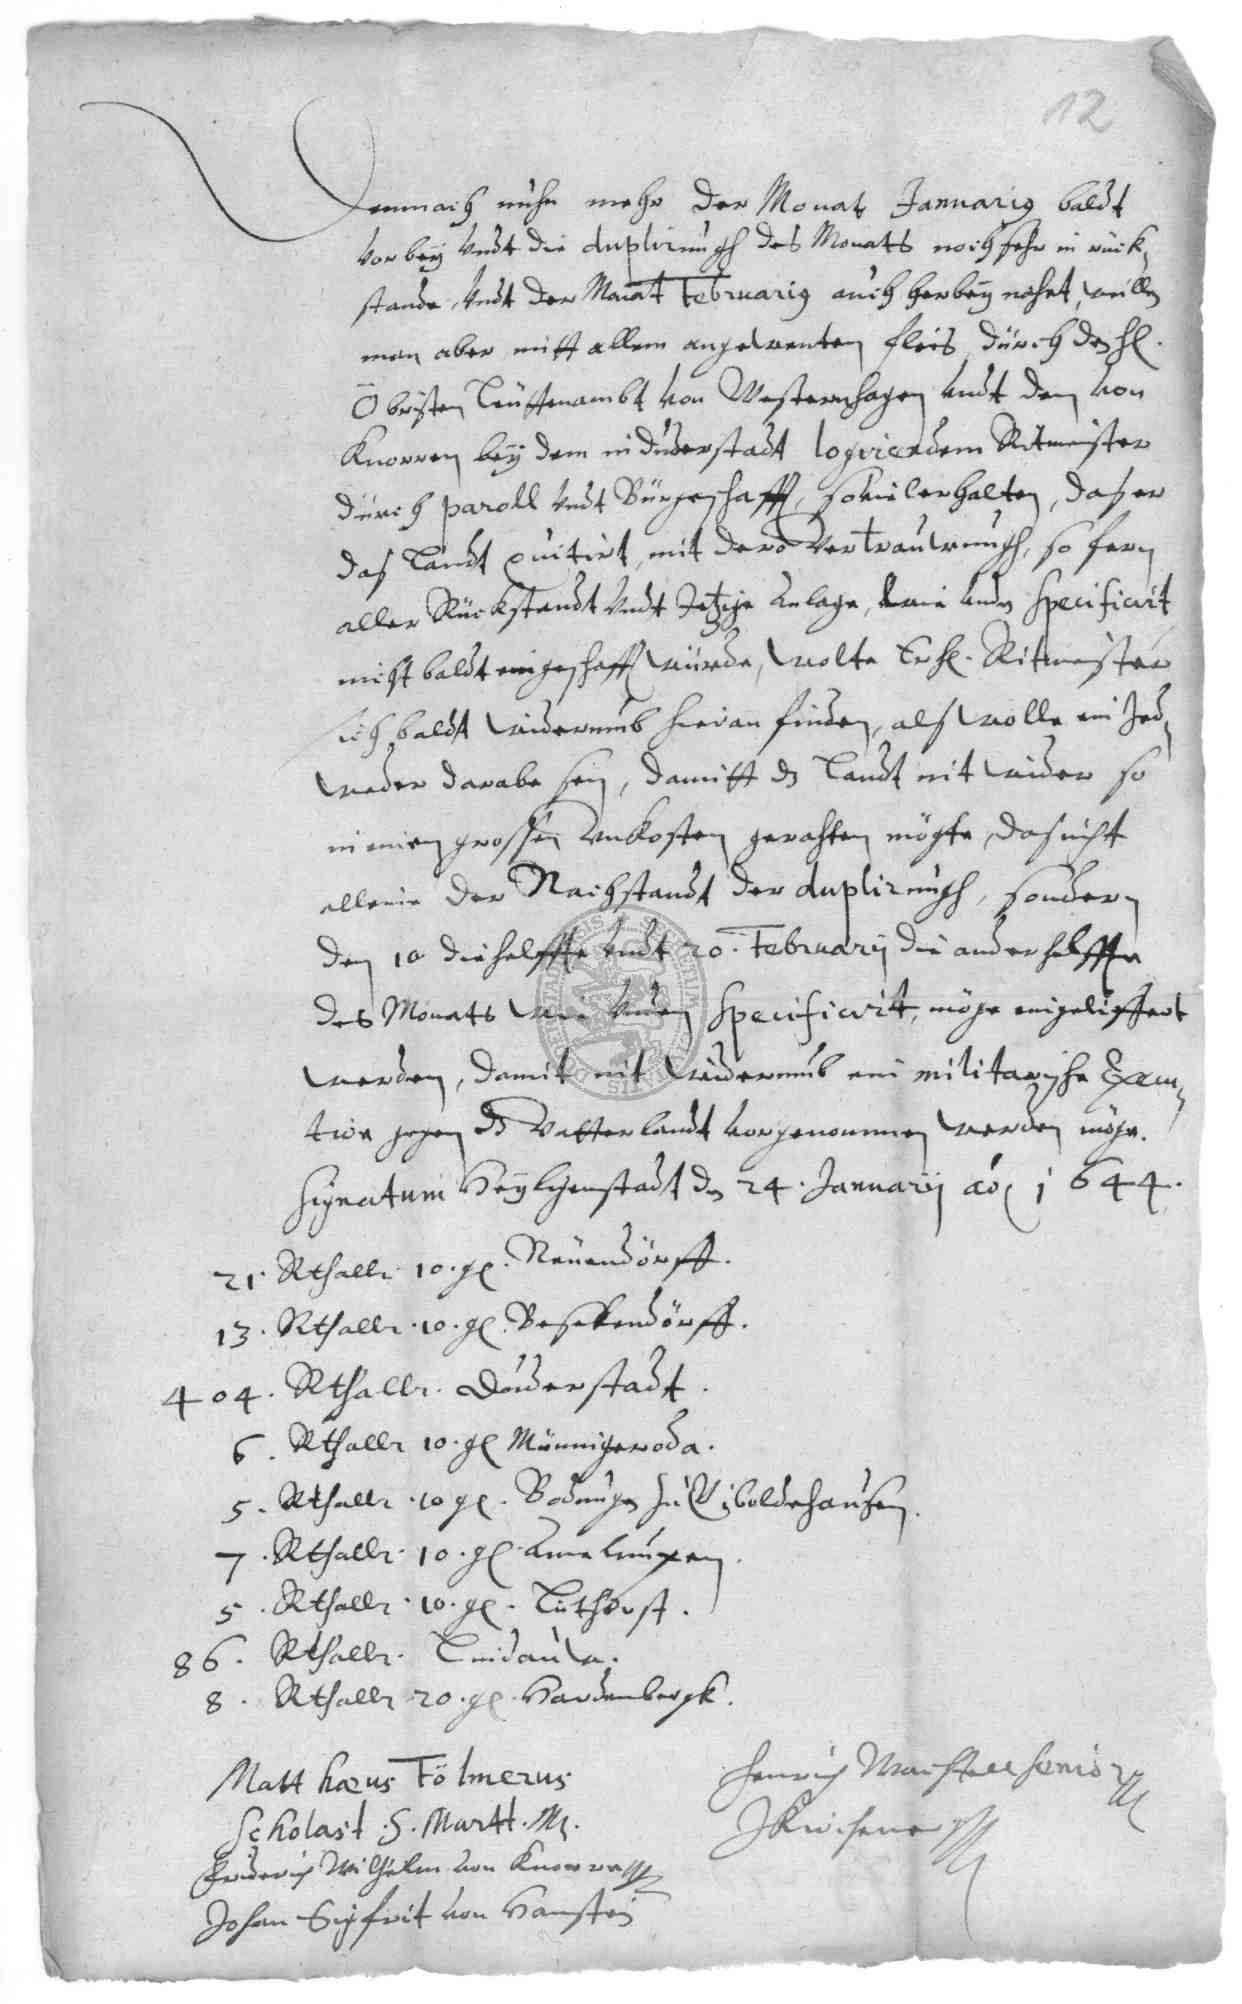 12
Demnach nuhn mehr der Monat Januarius baldt
vorbey undt die duplirungh des Monats noch sehr in rück-
stande, undt der Monat Februarius auch herbey nahet, weillen
man aber mitt allem angewenten fleis durch den H.
Obristen Leuttenambt von Westernhagen undt den von
Knorren bey dem in Duderstadt logirendem Ritmeister
durch paroll undt Bürgschafft, soviel erhalten, das er
das Landt quitirt, mit dero Vertrauwungh, so fern
aller Rückstandt undt Jetzige Anlage, wie unden specificirt
nicht baldt eingeschafft würde, wolte Er H. Ritmeister
sich baldt widerumb hieran finden, als wolle ein Jed-
weder darahn sein, damitt dz Landt nit wider so
in einen grossen unkosten gerahten mögte, das nicht
allein der Nachstandt der duplirungh, sondern
den 10 die helffte undt 20. Februarij die ander helffte
des Monats wie unden specificirt, möge eingeliffert
werden, damit nit widerumb ein militarische Execu-
tion gegen dz Vatterlandt vorgenommen werden möge.
Signatum Heyligenstadt den 24. Januarij ao 1644.
21. Rthallr. 10. gl. Neuendörff.
13. Rthallr. 10. gl. Besekendörff.
404. Rthallr. Duderstadt.
6. Rthallr 10. gl Minnigeroda.
5. Rthallr. 10 gl. Bodungen zu Giboldehausen.
7. Rthallr. 10. gl. Amelunxen.
5. Rthallr. 10. gl. Luthorst.
86. Rthallr. Lindauwe.
8. Rthallr 20. gl. Hardenbergk.
Matthaeus Tölmerus
Scholast. S. Martt. M.
Friderich Wilhelm von Knorre
Johan Sigfrit von Hanstein
Henrich senior
J Kirchener